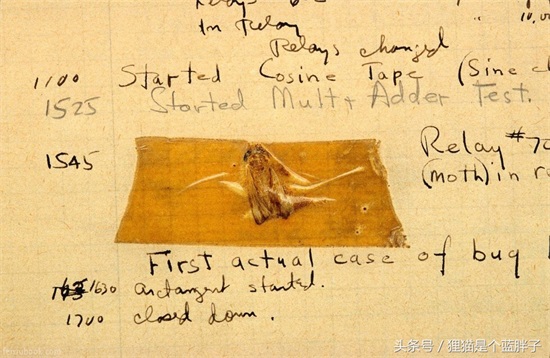 In Relay
Relays changed
1100 Started Cosine Tape (Sine
1525 Started Mult + Adder Test.
1545 Relay #70
(moth) in
First actual case of bug
1630 arctangent started.
1700 closed down.
头条号 / 狸猫是个蓝胖子